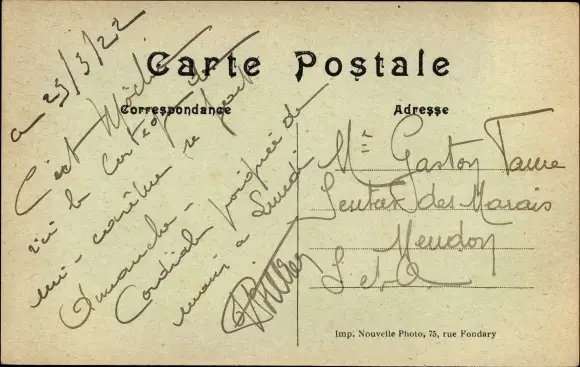 Carte Postale
Correspondance
Adresse
a 25/3/22
C'est
ici le Cortège de
mi-carême se fait
Dimanche-
Cordiale poignée de
main a Lundi
Mr Gaston
Sentier des Marais
Meudon
S et O
Imp. Nouvelle Photo, 75, rue Fondary